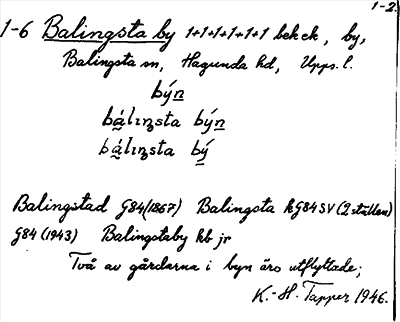 1-2
1-6 Balingsta by 1+1+1+1+1+1 bek ek, by,
Balingsta sn, Hagunda hd, Upps. l.
býn
bálıŋsta býn
bálıŋsta bý
Balingstad G84 (1867) Balingsta kG84SV (2 ställen)
G84 (1943) Balingstaby kb jr
Två av gårdarna i byn äro utflyttade;
K.-H. Tapper 1946.